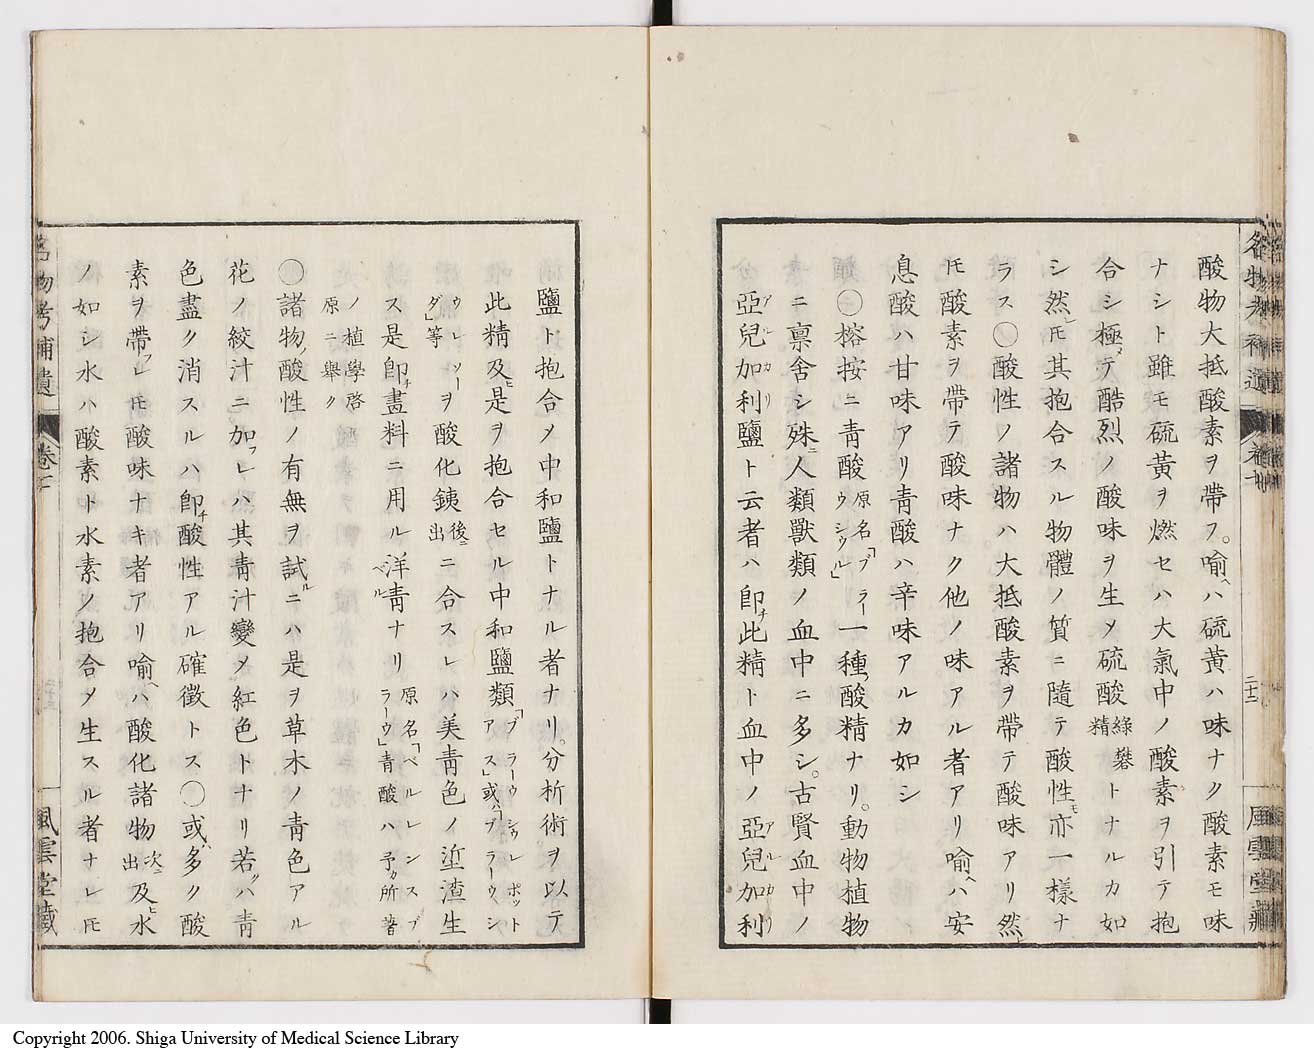 酸物大抵酸素ヲ帶フ。喩ヘハ硫黄ハ味ナク酸素モ味
ナシト雖モ硫黄ヲ燃セハ大氣中ノ酸素ヲ引テ抱
合シ極メテ酷烈ノ酸味ヲ生メ硫酸綠礬精トナルカ如
シ然レ𪜈其抱合スル物體ノ質ニ隨テ酸性モ亦一樣ナ
ラス〇酸性ノ諸物ハ大抵酸素ヲ帶テ酸味アリ然レ
𪜈酸素ヲ帶テ酸味ナク他ノ味アル者アリ喩ヘハ安
息酸ハ甘味アリ青酸ハ辛味アルカ如シ
〇榕按ニ青酸原名「ブラーウシウル」一種ノ酸精ナリ。動物植物
ニ稟舍シ殊ニ人類獸類ノ血中ニ多シ。古賢血中ノ
亞兒加利鹽ト云者ハ即チ此精ト血中ノ亞兒加利
アルカリ
アルカリ
名物考補遺
二十二
風雲堂藏
鹽ト抱合メ中和鹽トナル者ナリ。分析術ヲ以テ
此精及ヒ是ヲ抱合セル中和鹽類「ブラーウシウレポットアス」或ハ「ブラーウシ
ウレソーダ」等ヲ酸化銕後ニ出ニ合スレハ美青色ノ塗渣生
ス是即チ畫料ニ用ル洋青ナリ原名「ベルレンスブラーウ」青酸ハ予カ所著
ベル
ノ植學啓原ニ舉ク
〇諸物ノ酸性ノ有無ヲ試ルニハ是ヲ草木ノ青色アル
花ノ絞汁ニ加フレハ其青汁變メ紅色トナリ若クハ青
色盡ク消スルハ即チ酸性アル確徵トス〇或ハ多ク酸
素ヲ帶フレ𪜈酸味ナキ者アリ喩ヘハ酸化諸物次ニ出及ヒ水
ノ如シ水ハ酸素ト水素ノ抱合メ生スル者ナレ𪜈
名物考補遺
卷七
風雲堂藏
Copyright 2006. Shiga University of Medical Science Library